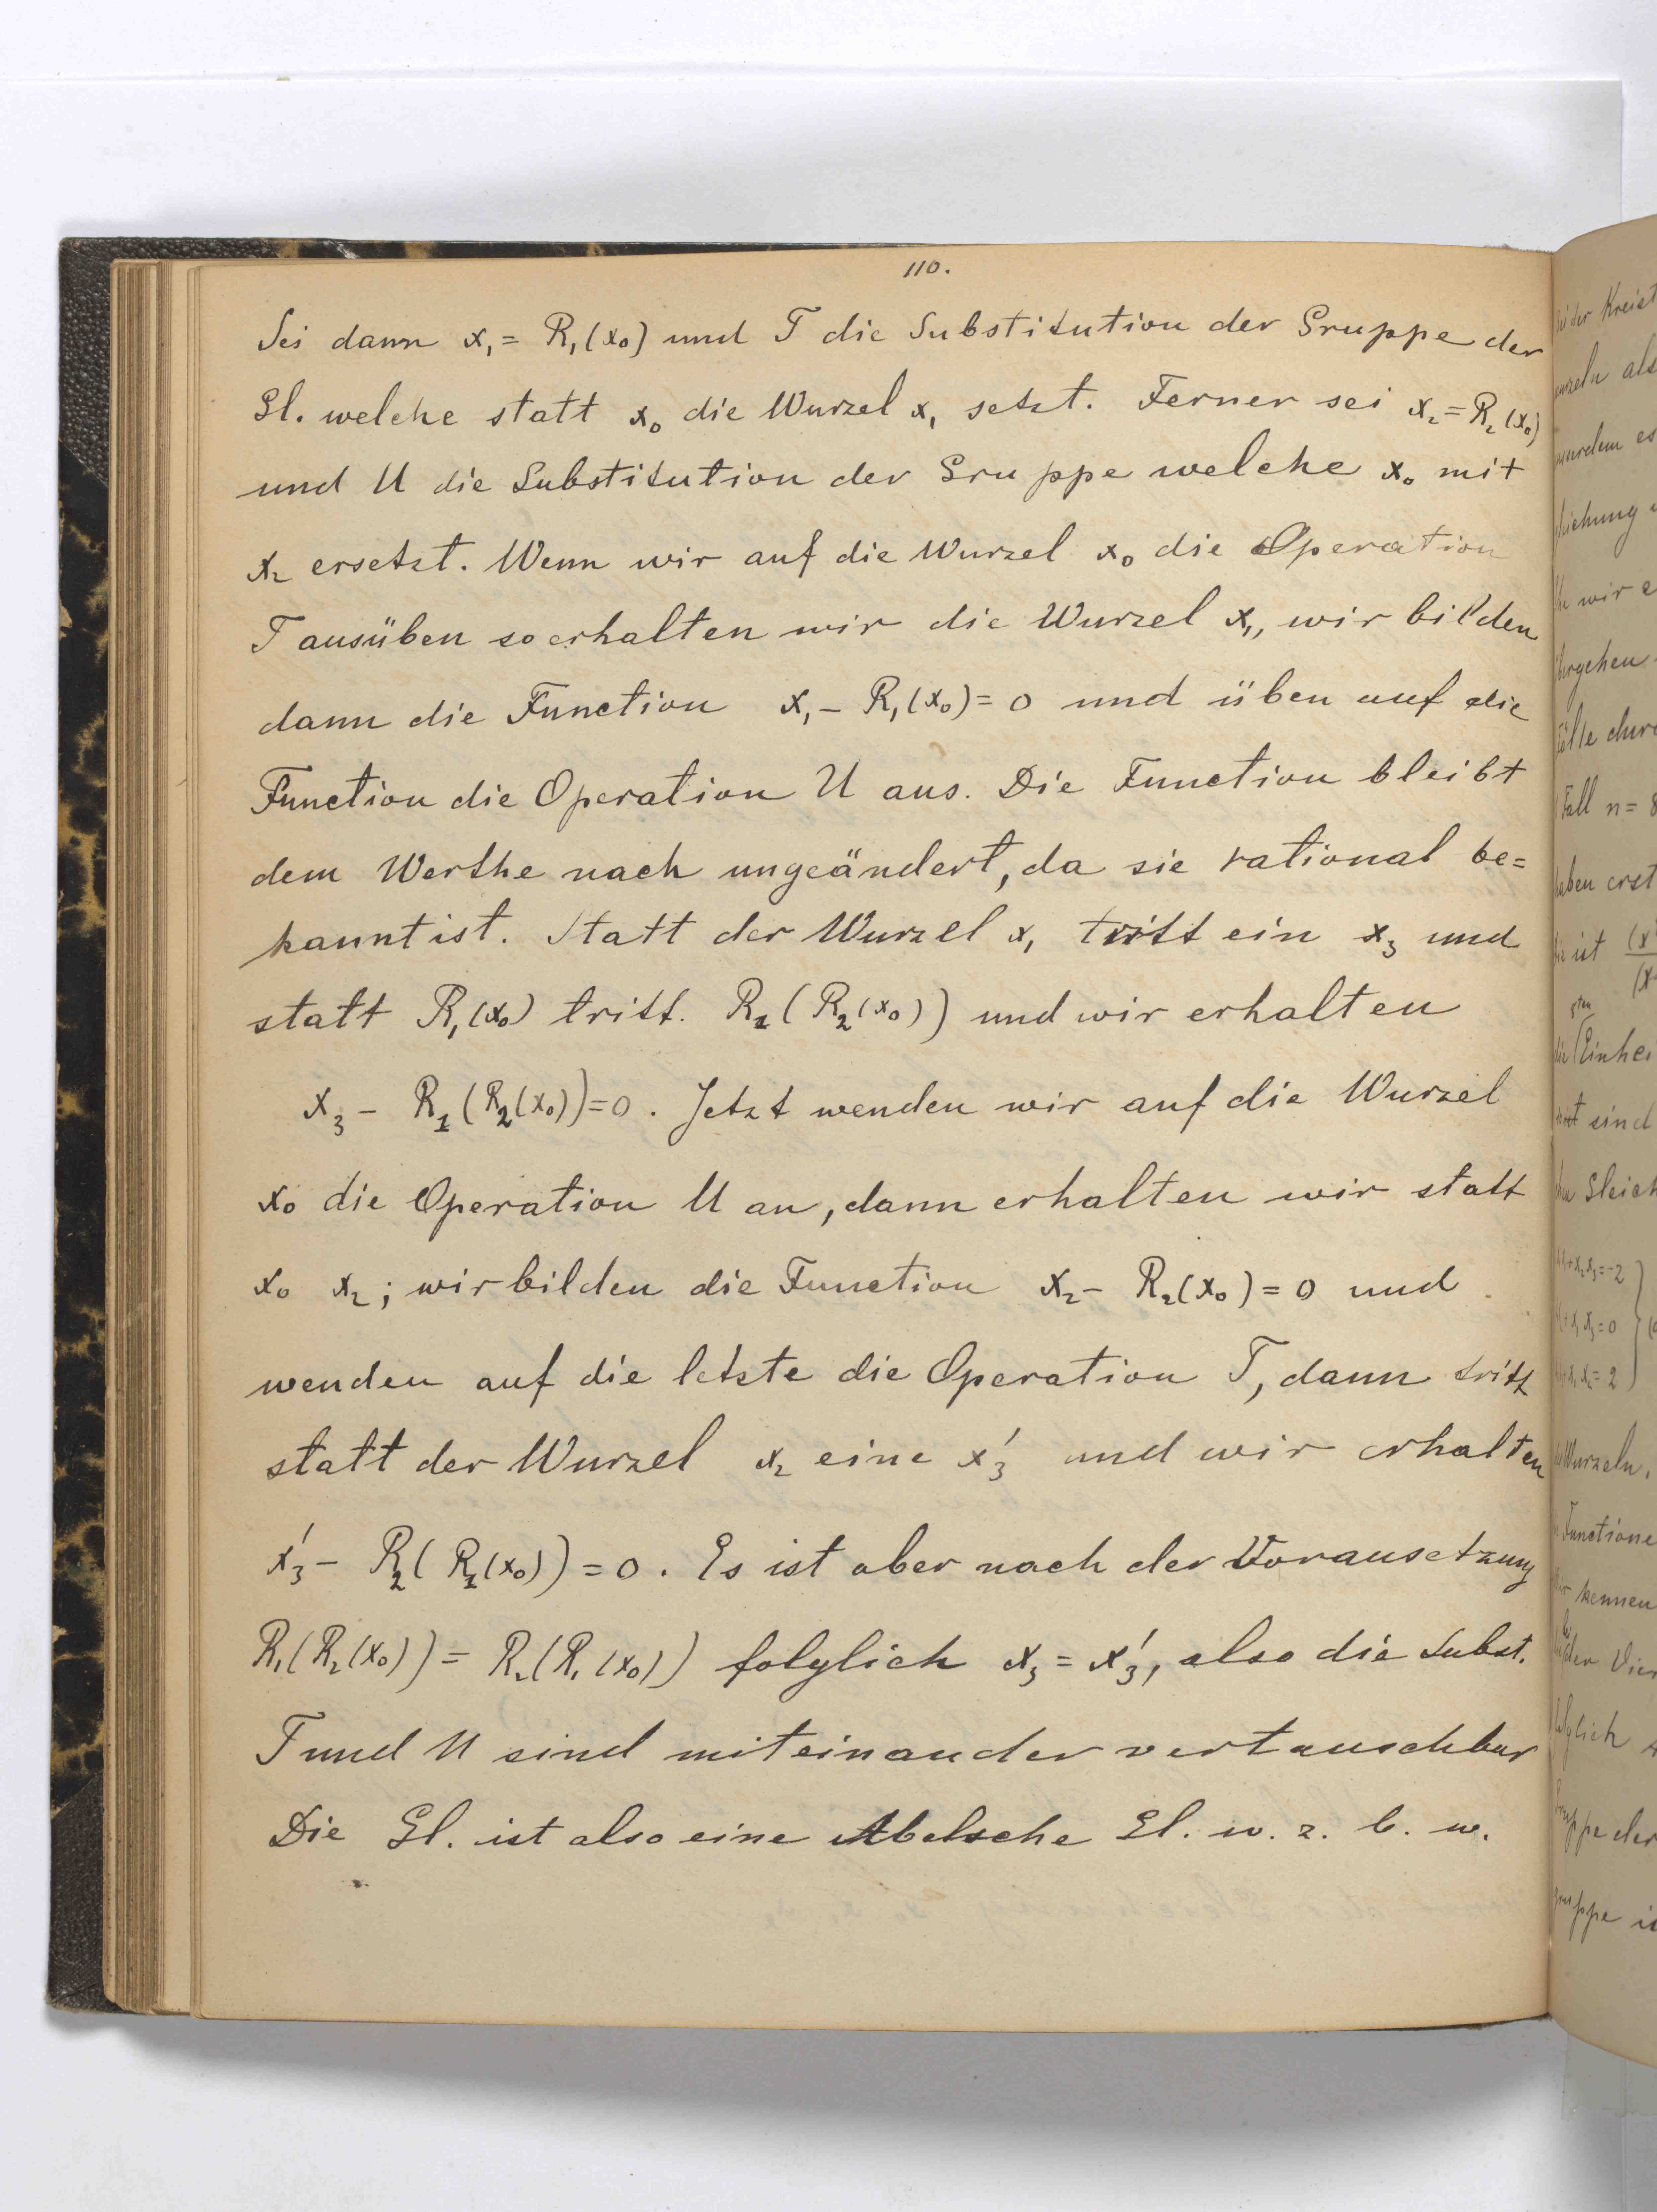 110.
Sei dann x₁ = R₁(x₀) und T die Substitution der Gruppe der
Gl. welche statt x₀ die Wurzel x₁ setzt. Ferner sei x₂ = R₂(x₀)
und U die Substitution der Gruppe welche x₀ mit
x₂ ersetzt. Wenn wir auf die Wurzel x₀ die Operation
T ausüben so erhalten wir die Wurzel x₁, wir bilden
dann die Function x₁ - R₁(x₀) = 0 und üben auf die
Function die Operation U aus. Die Function bleibt
dem Werthe nach ungeändert, da sie rational be=
kannt ist. Statt der Wurzel x₁ tritt ein x₃ und
statt R₁(x₀) tritt. R₁(R₂(x₀)) und wir erhalten
x₃ - R₁(R₂(x₀)) = 0. Jetzt wenden wir auf die Wurzel
x₀ die Operation U an, dann erhalten wir statt
x₀ x₂; wir bilden die Function x₂ - R₂(x₀) = 0 und
wenden auf die letzte die Operation T, dann tritt
statt der Wurzel x₂ eine x₃' und wir erhalten
x₃' - R₂(R₁(x₀)) = 0. Es ist aber nach der Vorausetzung
R₁(R₂(x₀)) = R₂(R₁(x₀)) folglich x₃ = x₃', also die Subst.
T und U sind miteinander vertauschbar
Die Gl. ist also eine Abelsche Gl. w. z. b. w.
der Kreist
als
es
wir e
Fall n = 8
erst
ist
Einhei
sind
Gleich
Wurzeln.
Functione
kennen
der Vier
der